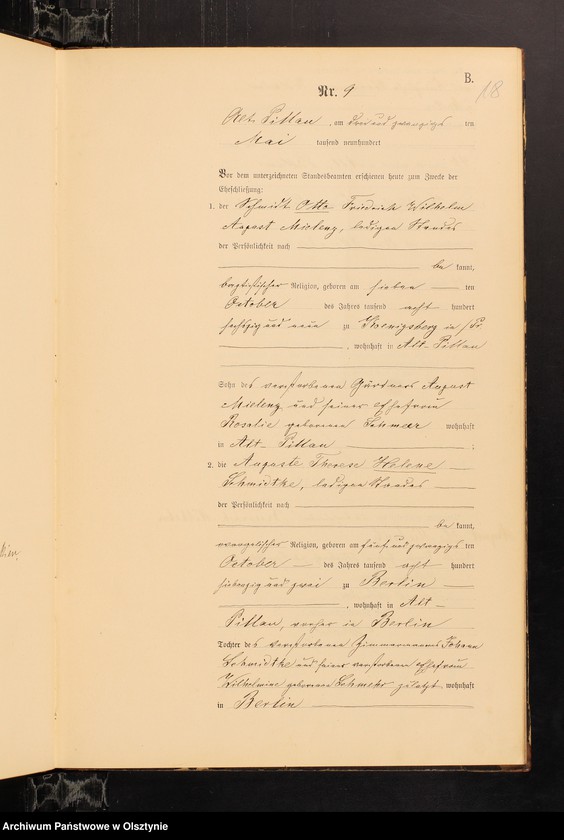 B.
18
Nr. 9
Alt Pillau, am drei und zwanzigsten
Mai tausend neunhundert
Vor dem unterzeichneten Standesbeamten erschienen heute zum Zwecke der
Eheschließung:
1. der Schmidt Otto Friedrich Wilhelm
August Mielenz, ledigen Standes
der Persönlichkeit nach
be kannt,
baptistischer Religion, geboren am sieben ten
October des Jahres tausend acht hundert
sechszig und neun zu in /Pr
, wohnhaft in Alt-Pillau
Sohn des verstorbenen Gärtners August
Mielenz und seiner Ehefrau
Rosalie geborenen wohnhaft
in Alt-Pillau ;
2. die Auguste Therese Helene
Schmidtke, ledigen Standes
der Persönlichkeit nach
be kannt,
evangelischer Religion, geboren am fünf und zwanzigsten
October des Jahres tausend acht hundert
siebenzig und zwei zu Berlin
, wohnhaft in Alt-
Pillau, vorher in Berlin
Tochter des verstorbenen Zimmermanns Johann
Schmidtke und seiner verstorbenen Ehefrau
Wilhelmine geborenen zuletzt wohnhaft
in Berlin
Archiwum Państwowe w Olsztynie